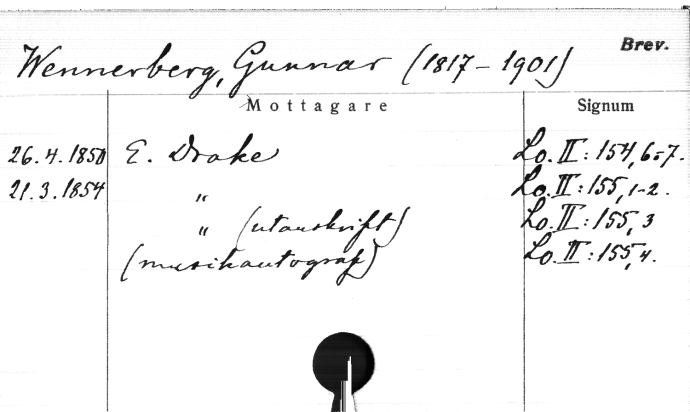 Brev.
Wennerberg, Gunnar (1817-1901)
Mottagare Signum
26.4.1850 E. Drake Lo. II:154, 6-7.
21.3.1854 " Lo. II:155, 1-2.
" (utanskrift) Lo. II:155, 3
(musikautograf) Lo. II:155, 4.